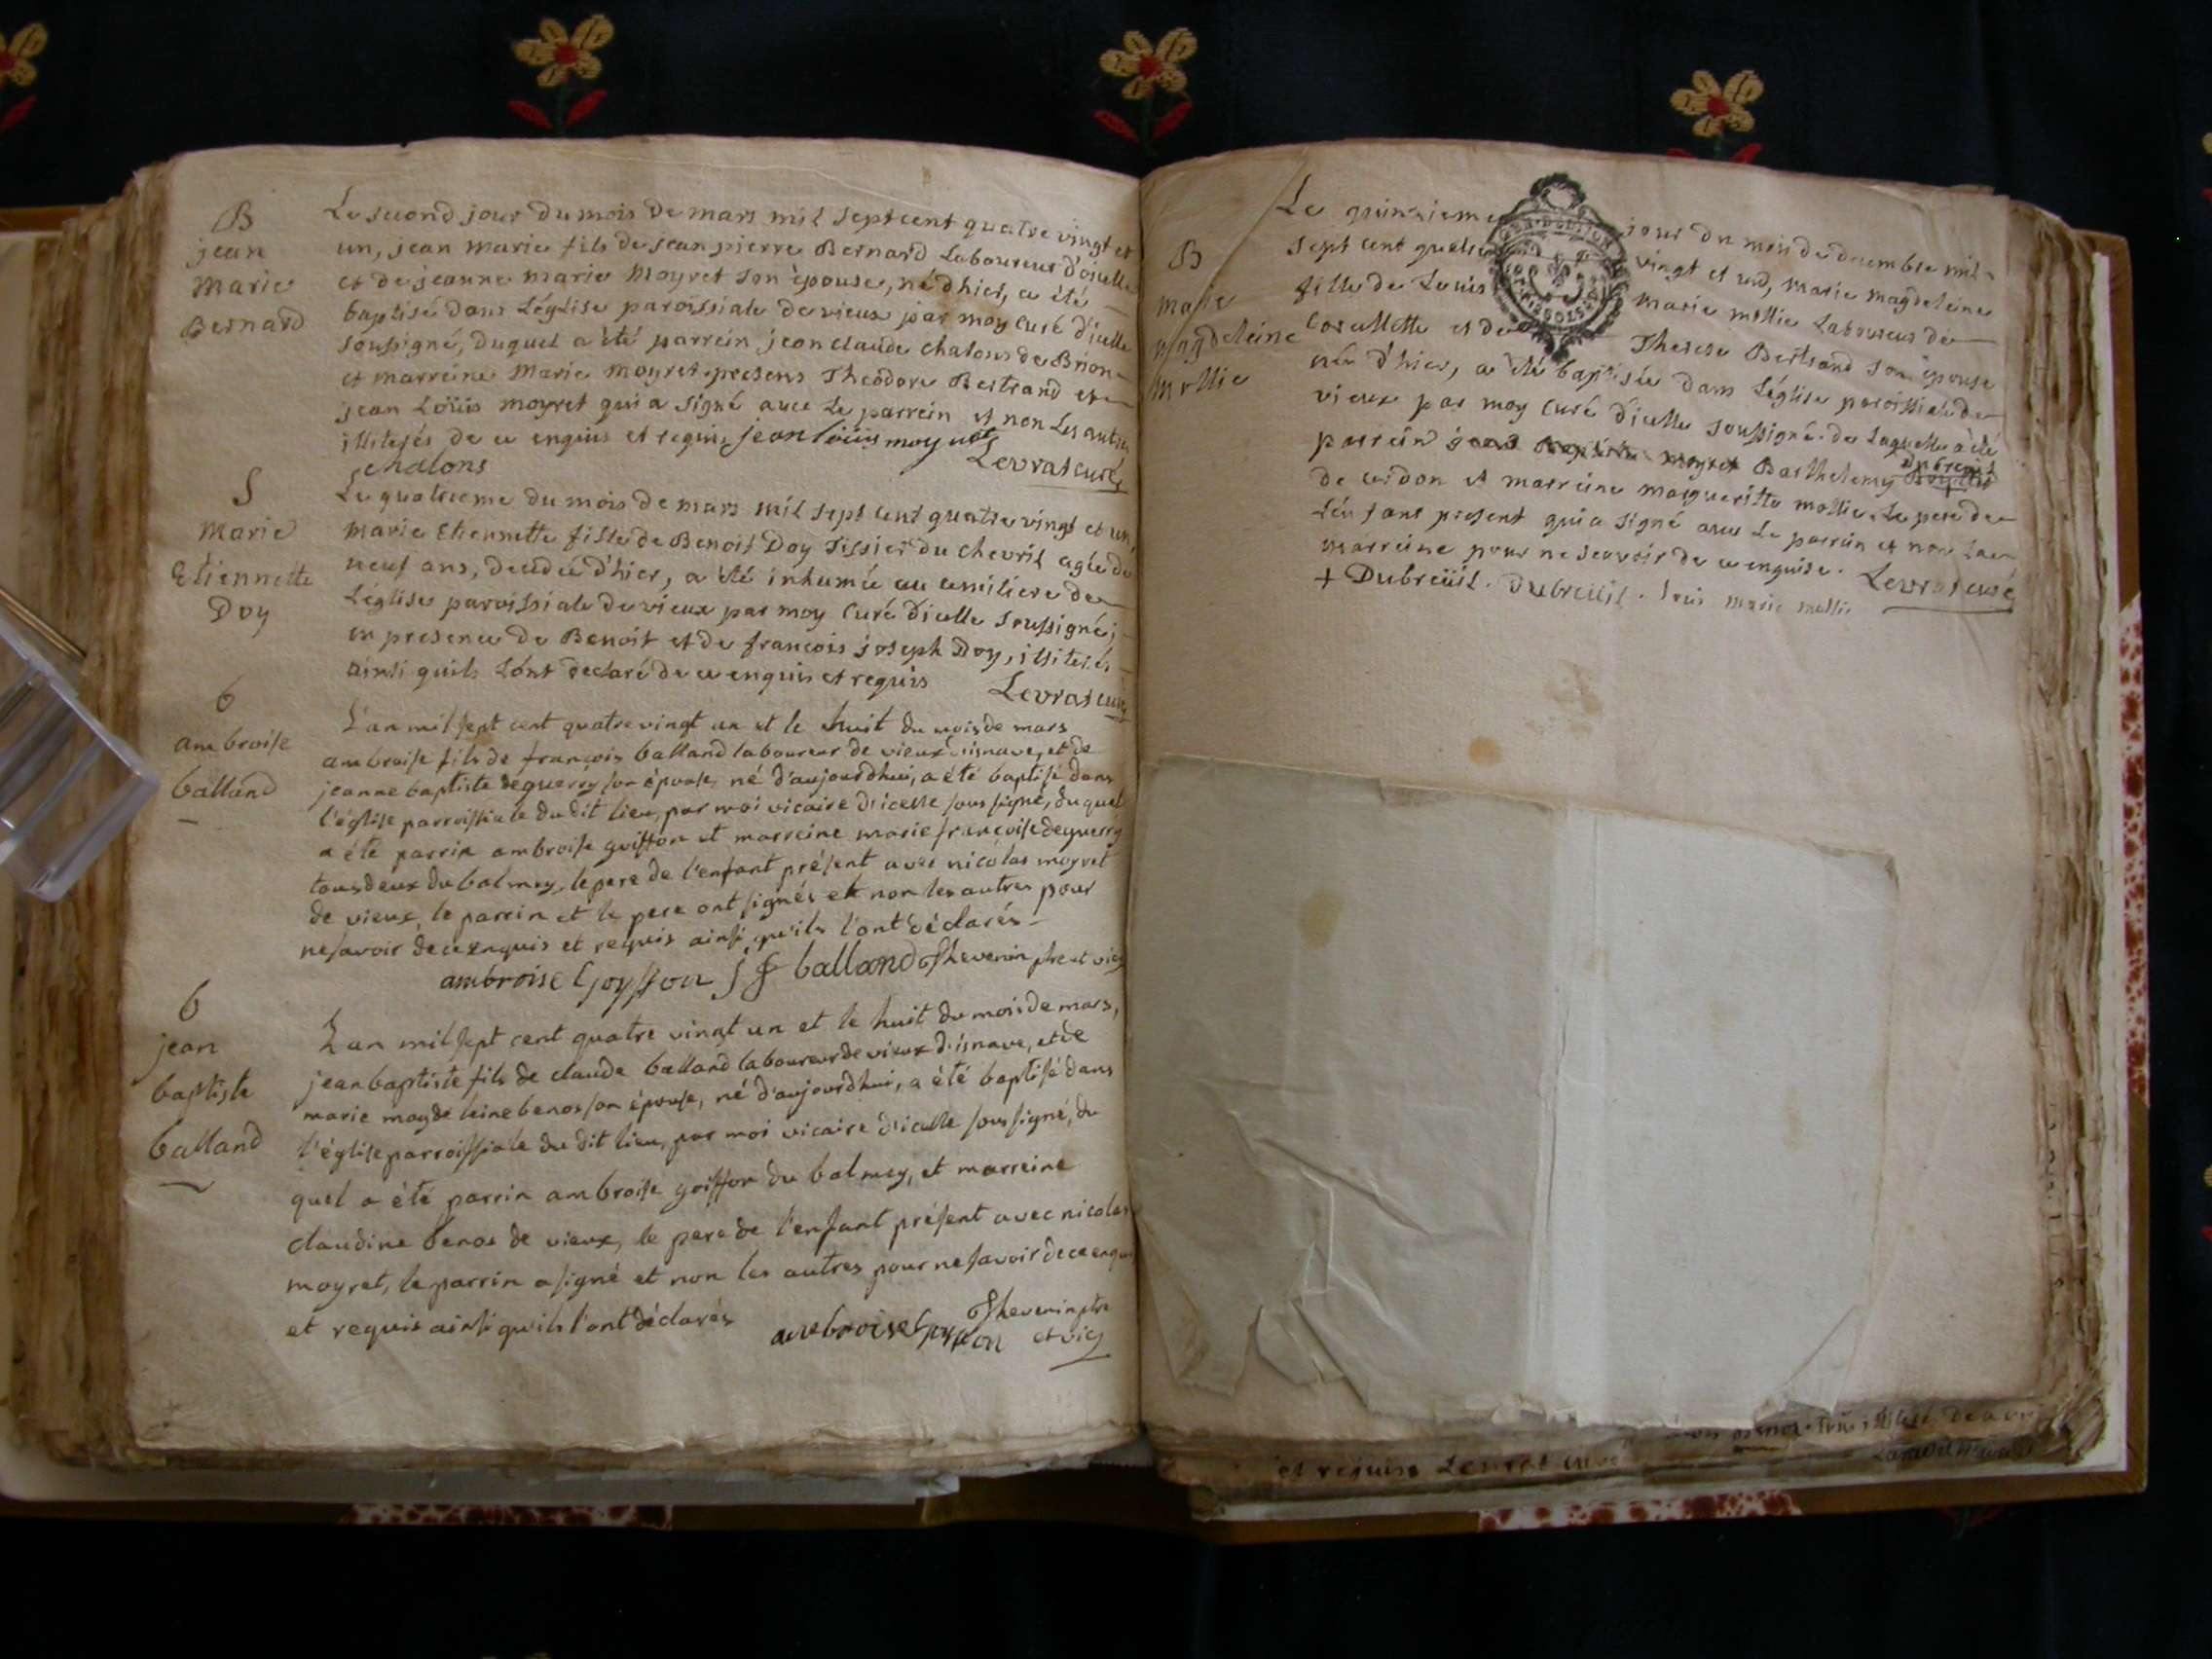 B
jean
Marie
Bernard
Le second jour du mois de mars mil sept cent quatre vingt et
un, jean marie fils de jean pierre Bernard Laboureur d'oiselle
et de jeanne marie Moyret son épouse, né d'hier, a été
baptisé dans Léglise paroissiale de vieux par moy curé d'icelle
soussigné, duquel a été parrein jean claude chalons de Brion
et marreine Marie moyret. presens Theodore Bertrand et
jean Loüis moyret qui a signé avec Le parrein et non Les autres
illiterés de ce enquis et requis jean loüis moyret
chalons Levrat curé
S
Marie
Etiennette
Doy
Le quatrieme du mois de mars mil sept cent quatre vingt et un,
marie Etiennette fille de Benoit Doy Tissier du chevril agée de
neuf ans, decedée d'hier, a été inhumée au cemitiere de
Léglise paroissiale de vieux par moy curé d'icelle soussigné;
en presence de Benoit et de francois joseph Doy, illiterés
ainsi quils L'ont declaré de ce enquis et requis Levrat curé
b
ambroise
balland
L'an mil sept cent quatre vingt un et le huit du mois de mars
ambroise fils de françois balland laboureur de vieux d'isnave, et de
jeanne baptiste deguerry son épouse, né d'aujourdhui, a été baptisé dans
l'église parroissiale du dit lieu, par moi vicaire d'icelle sous signé, du quel
a été parrin ambroise goiffon et marreine marie françoise deguerry
tous deux du balmey, le pere de l'enfant présent avec nicolas moyret
de vieux, le parrin et le pere ont signés et non les autres pour
ne savoir de ce enquis et requis ainsi qu'ils l'ont déclarés
ambroise Goyffon balland Thevenin ptre et vic
b
jean
baptiste
balland
L'an mil sept cent quatre vingt un et le huit du mois de mars,
jean baptiste fils de claude balland laboureur de vieux d'isnave, et de
marie magdeleine benos son épouse, né d'aujourdhui, a été baptisé dans
l'église parroissiale du dit lieu, par moi vicaire d'icelle sous signé, du
quel a été parrin ambroise goiffon du balmey, et marreine
claudine benos de vieux, le pere de l'enfant présent avec nicolas
moyret, le parrin a signé et non les autres pour ne savoir de ce enquis
et requis ainsi qu'ils l'ont déclarés ambroise Goyffon Thevenin ptre
et vic
B
marie
magdeleine
mollie
Le quinzieme jour du mois de decembre mil
sept cent quatre vingt et un, marie magdeleine
fille de Louis marie mollie Laboureur de
Corcellette et de Therese Bertrand son épouse
née d'hier, a été baptisée dans Léglise paroissiale de
vieux par moy curé d'icelle soussigné. de Laquelle a été
parrein Barthelemy Dubreüil
de cerdon et marreine margueritte mollie. Le pere de
Lénfant present qui a signé avec Le parrein et non La
marreine pour ne scavoir de ce enquise. Levrat curé
+ Dubreüil. Dubreüil. Louis marie mollie
et requis Levrat curé